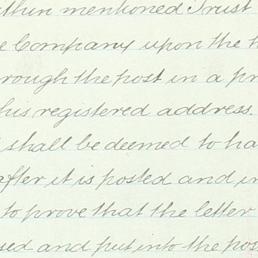 within mentioned Trust
Company upon the
through the post in a
his registered address.
shall be deemed to
after it is posted and
to prove that the letter
and put into the